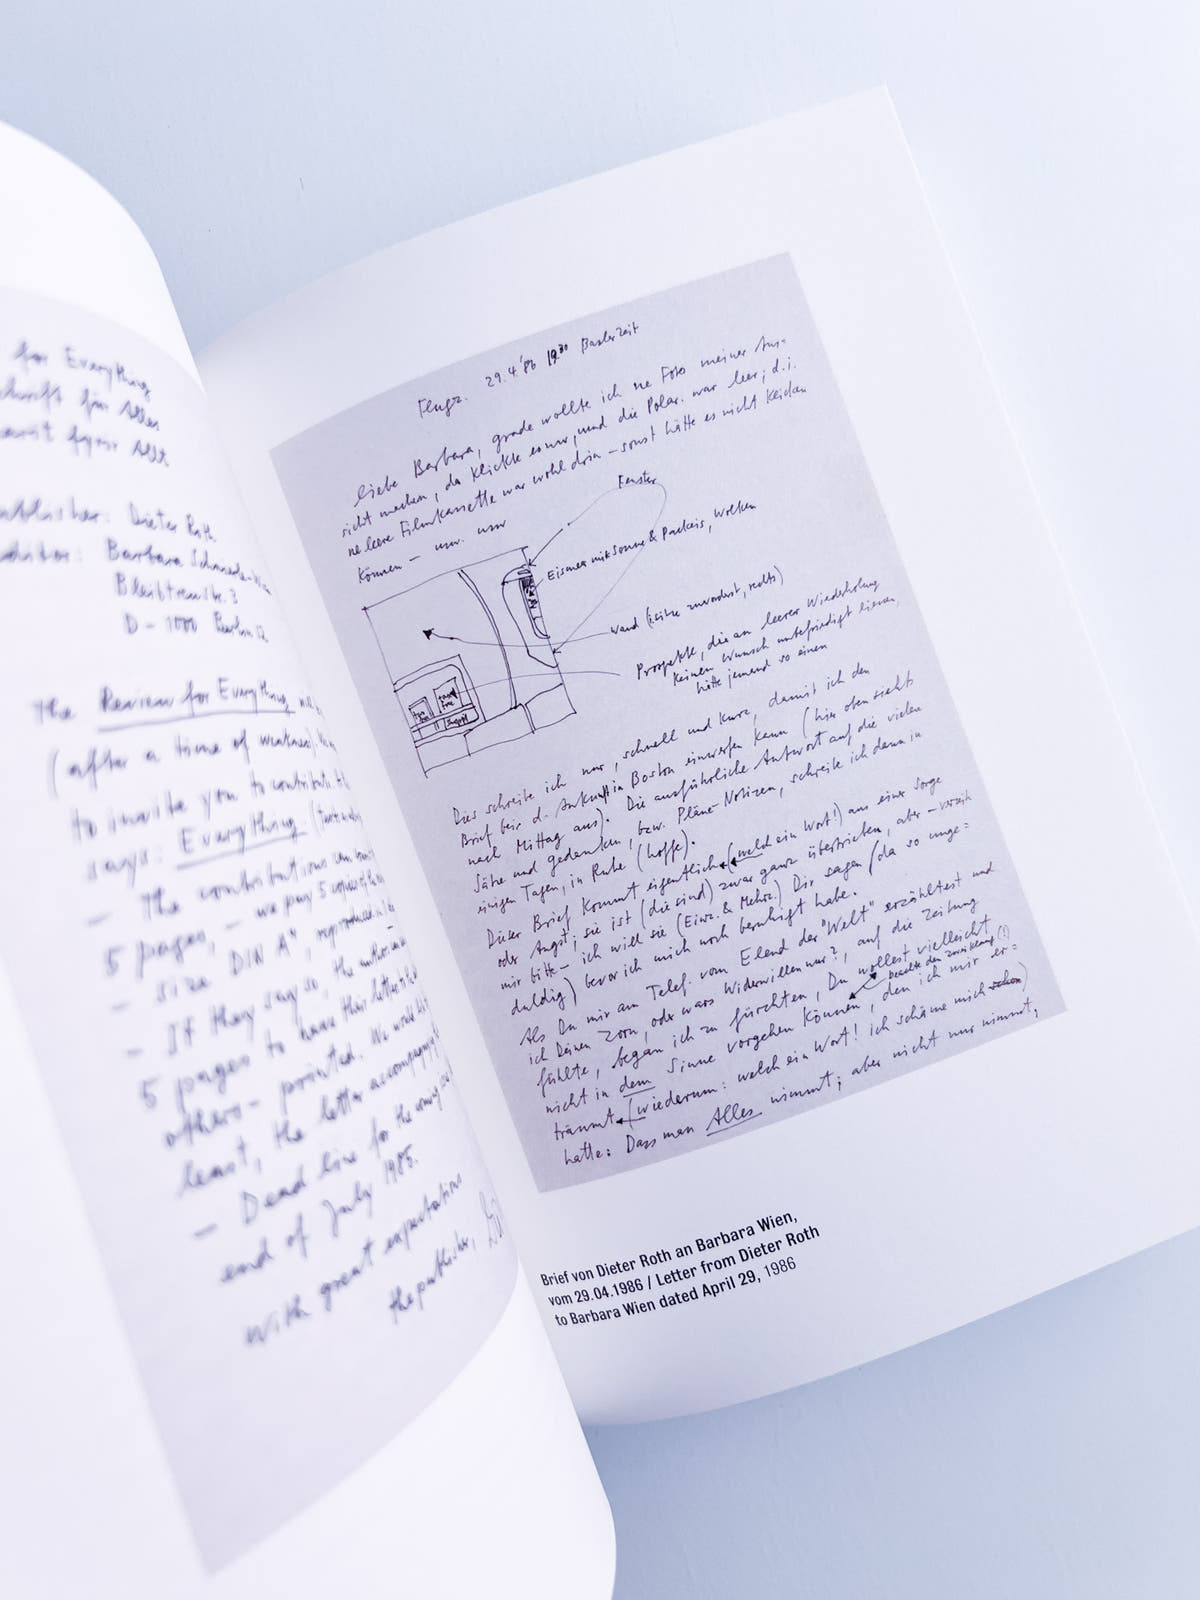 for Everything
für Alles
fyrir Allt
Dieter Roth
Barbara
Bleibtreustr. 3
D - 1000 Berlin 12
The Review for Everything
(after a time of weakness).
to invite you to contribute
says: Everything.
- The contributions
5 pages, - we pay 5 copies of the
- size DIN A4, reproduced in
- If they say so, the
5 pages to have their letter to
others - printed. We would
least, the letter accompanying
- Dead line for the coming
end of July 1985.
with great expectations
the publisher,
Flugz. 29.4.'86 19.30 Basler Zeit
liebe Barbara, grade wollte ich ne Foto meiner Aus-
sicht machen, da klickte es nur, und die Polar. war leer; d.i.
ne leere Filmkassette war wohl drin - sonst hätte es nicht klicken
können - usw. usw
Fenster
Eismeer mit Sonne & Packeis, Wolken
Wand (sitze zuvorderst, rechts)
Prospekte, die an leerer Wiederholung
keinen Wunsch unbefriedigt liessen,
hätte jemand so einen
Dies schreibe ich nur, schnell und kurz, damit ich den
Brief beir d. Ankunft in Boston einwerfen kann (hier oben siehts
nach Mittag aus). Die ausführliche Antwort auf die vielen
Sätze und Gedanken, bzw. Pläne-Notizen, schreibe ich dann in
einigen Tagen, in Ruhe (hoffe).
Dieser Brief kommt eigentlich (welch ein Wort!) aus einer Sorge
oder Angst; sie ist (die sind) zwar ganz übertrieben, aber - verzeih
mir bitte - ich will sie (Einz. & Mehrz.) Dir sagen (da so unge=
duldig) bevor ich mich noch beruhigt habe.
Als Du mir am Telef. vom Elend der "Welt" erzähltest und
ich Deinen Zorn, oder wars Widerwillen nur?, auf die Zeitung
fühlte, began ich zu fürchten, Du wollest vielleicht
beachte den Zwieklang (!)
nicht in dem Sinne vorgehen können, den ich mir er=
träumt (wiederum: welch ein Wort! ich schäme mich schon)
hatte: Dass man Alles nimmt; aber nicht nur nimmt,
Brief von Dieter Roth an Barbara Wien,
vom 29.04.1986 / Letter from Dieter Roth
to Barbara Wien dated April 29, 1986